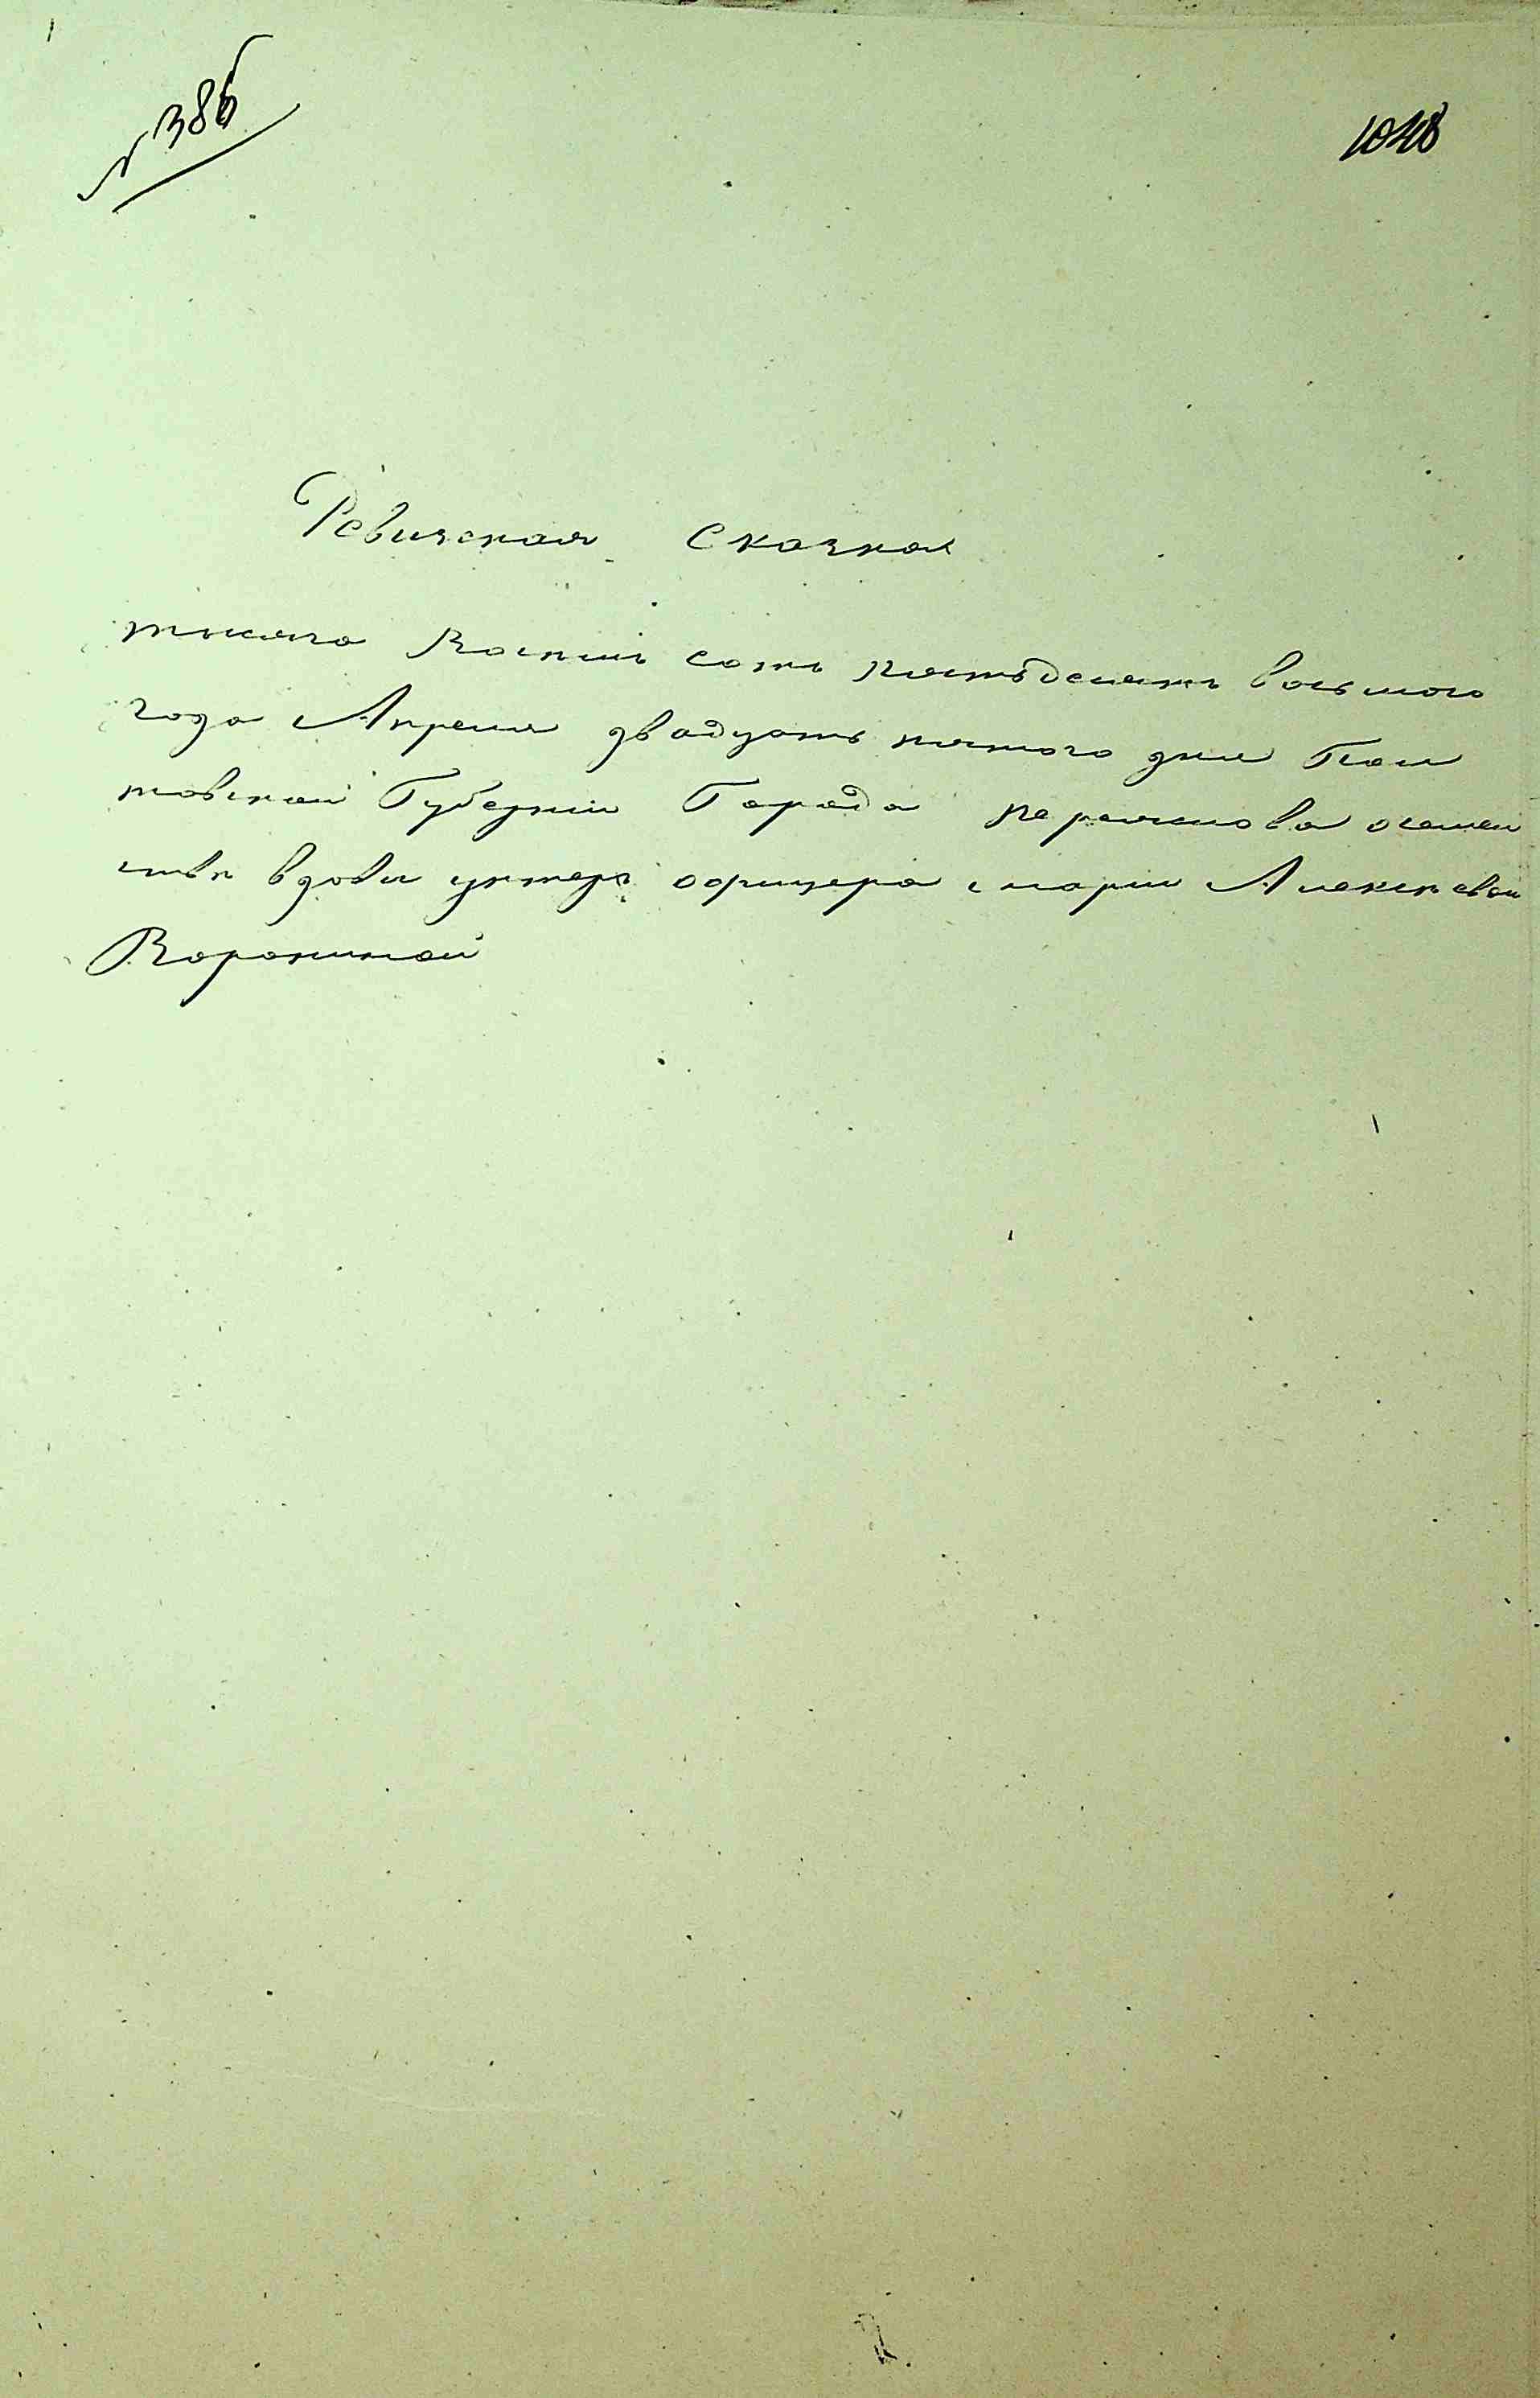 № 386
1048
Ревизская Сказка
тысяча Восемь сотъ пятьдесятъ восьмого
года Апреля двадцать пятого дня Пол
тавской Губернии Города
вдовы унтеръ офицера марии Алексеевой
Ворониной